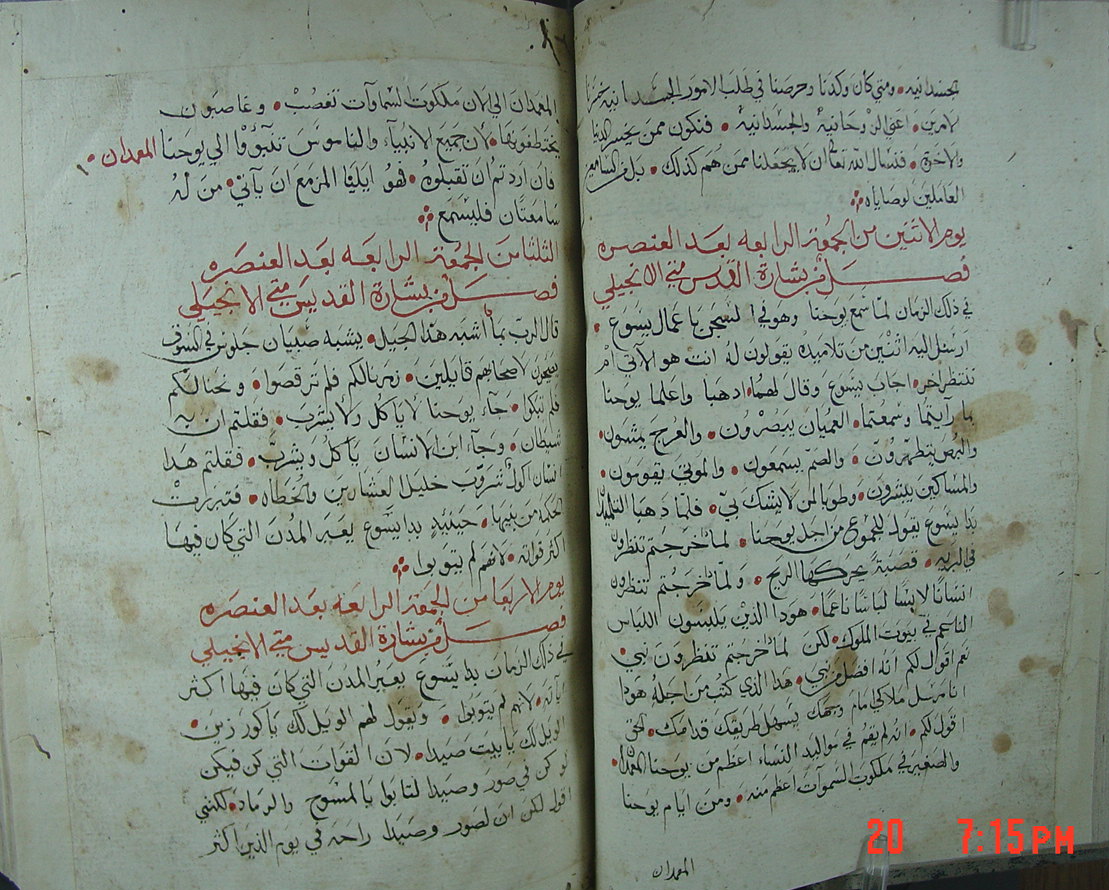 بجسدانيه ومتي كان وكدنا وحرصنا في طلب الامور الجسدانية خسرنا
لامرين اعني الروحانية والجسدانية فنكون ممن يخسر الدنيا
والاخرة فنسال الله تعالى ان لا يجعلنا ممن هم كذلك بل من السامعين
العاملين لوصاياه
يوم الاثنين من الجمعة الرابعه بعد العنصره
فصل من بشارة القدس متي الانجيلي
في ذلك الزمان لما سمع يوحنا وهو في السجن باعمال يسوع
ارسل اليه اثنين من تلاميذه يقولون له انت هو الآتي ام
ننتظر اخر اجاب يسوع وقال لهما اذهبا واعلما يوحنا
بما رايتما وسمعتما العميان يبصرون والعرج يمشون
والبرص يتطهرون والصم يسمعون والموتى يقومون
والمساكين يبشرون وطوبا لمن لا يشك بي فلما ذهبا التلميذان
بدا يسوع يقول للجموع من اجل يوحنا لما خرجتم تنظرون
في البريه قصبة يحركها الريح ولما خرجتم تنظرون
انسانا لابسا لباسا ناعما هوذا الذين يلبسون اللباس
الناعم في بيوت الملوك لكن لما خرجتم تنظرون نبي
نعم اقول لكم انه افضل من نبي هذا الذي كتب من اجله هوذا
انا مرسل ملاكي امام وجهك يسهل طريقك قدامك الحق
اقول لكم انه لم يقم في مواليد النساء اعظم من يوحنا المعمدان
والصغير في ملكوت السموات اعظم منه ومن ايام يوحنا
المعمدان
المعمدان الي الان ملكوت السماوات تغصب وغاصبون
يختطفونها لان جميع الانبياء والناموس تنبؤوا الي يوحنا المعمدان
فان اردتم ان تقبلوه فهو ايليا المزمع ان يأتي من له
سامعتان فليسمع
الثلثا من الجمعة الرابعه بعد العنصره
فصل من بشارة القديس متي الانجيلي
قال الرب بما اشبه هذا الجيل يشبه صبيان جلوس في السوق
يصيحون لاصحابهم قايلين زمرنا لكم فلم ترقصوا ونحنا لكم
فلم تبكوا جاء يوحنا لا ياكل ولا يشرب فقلتم ان به
شيطان وجاء ابن الانسان ياكل ويشرب فقلتم هذا
انسان اكول شروب خليل العشارين والخطاه فتبررت
الحكمة من بنيها حينيذ بدا يسوع يعير المدن التي كان فيها
اكثر قواته لانهم لم يتوبوا
يوم الاربعا من الجمعة الرابعه بعد العنصره
فصل من بشارة القديس متي الانجيلي
في ذلك الزمان بدا يسوع يعير المدن التي كان فيها اكثر
اياته لانهم لم يتوبوا ويقول لهم الويل لك يا كورزين
الويل لك يا بيت صيدا لان القوات التي كن فيكن
لو كن في صور وصيدا لتابوا بالمسوح والرماد لكنني
اقول لكن ان لصور وصيدا راحه في يوم الدين اكثر
20 7:15PM